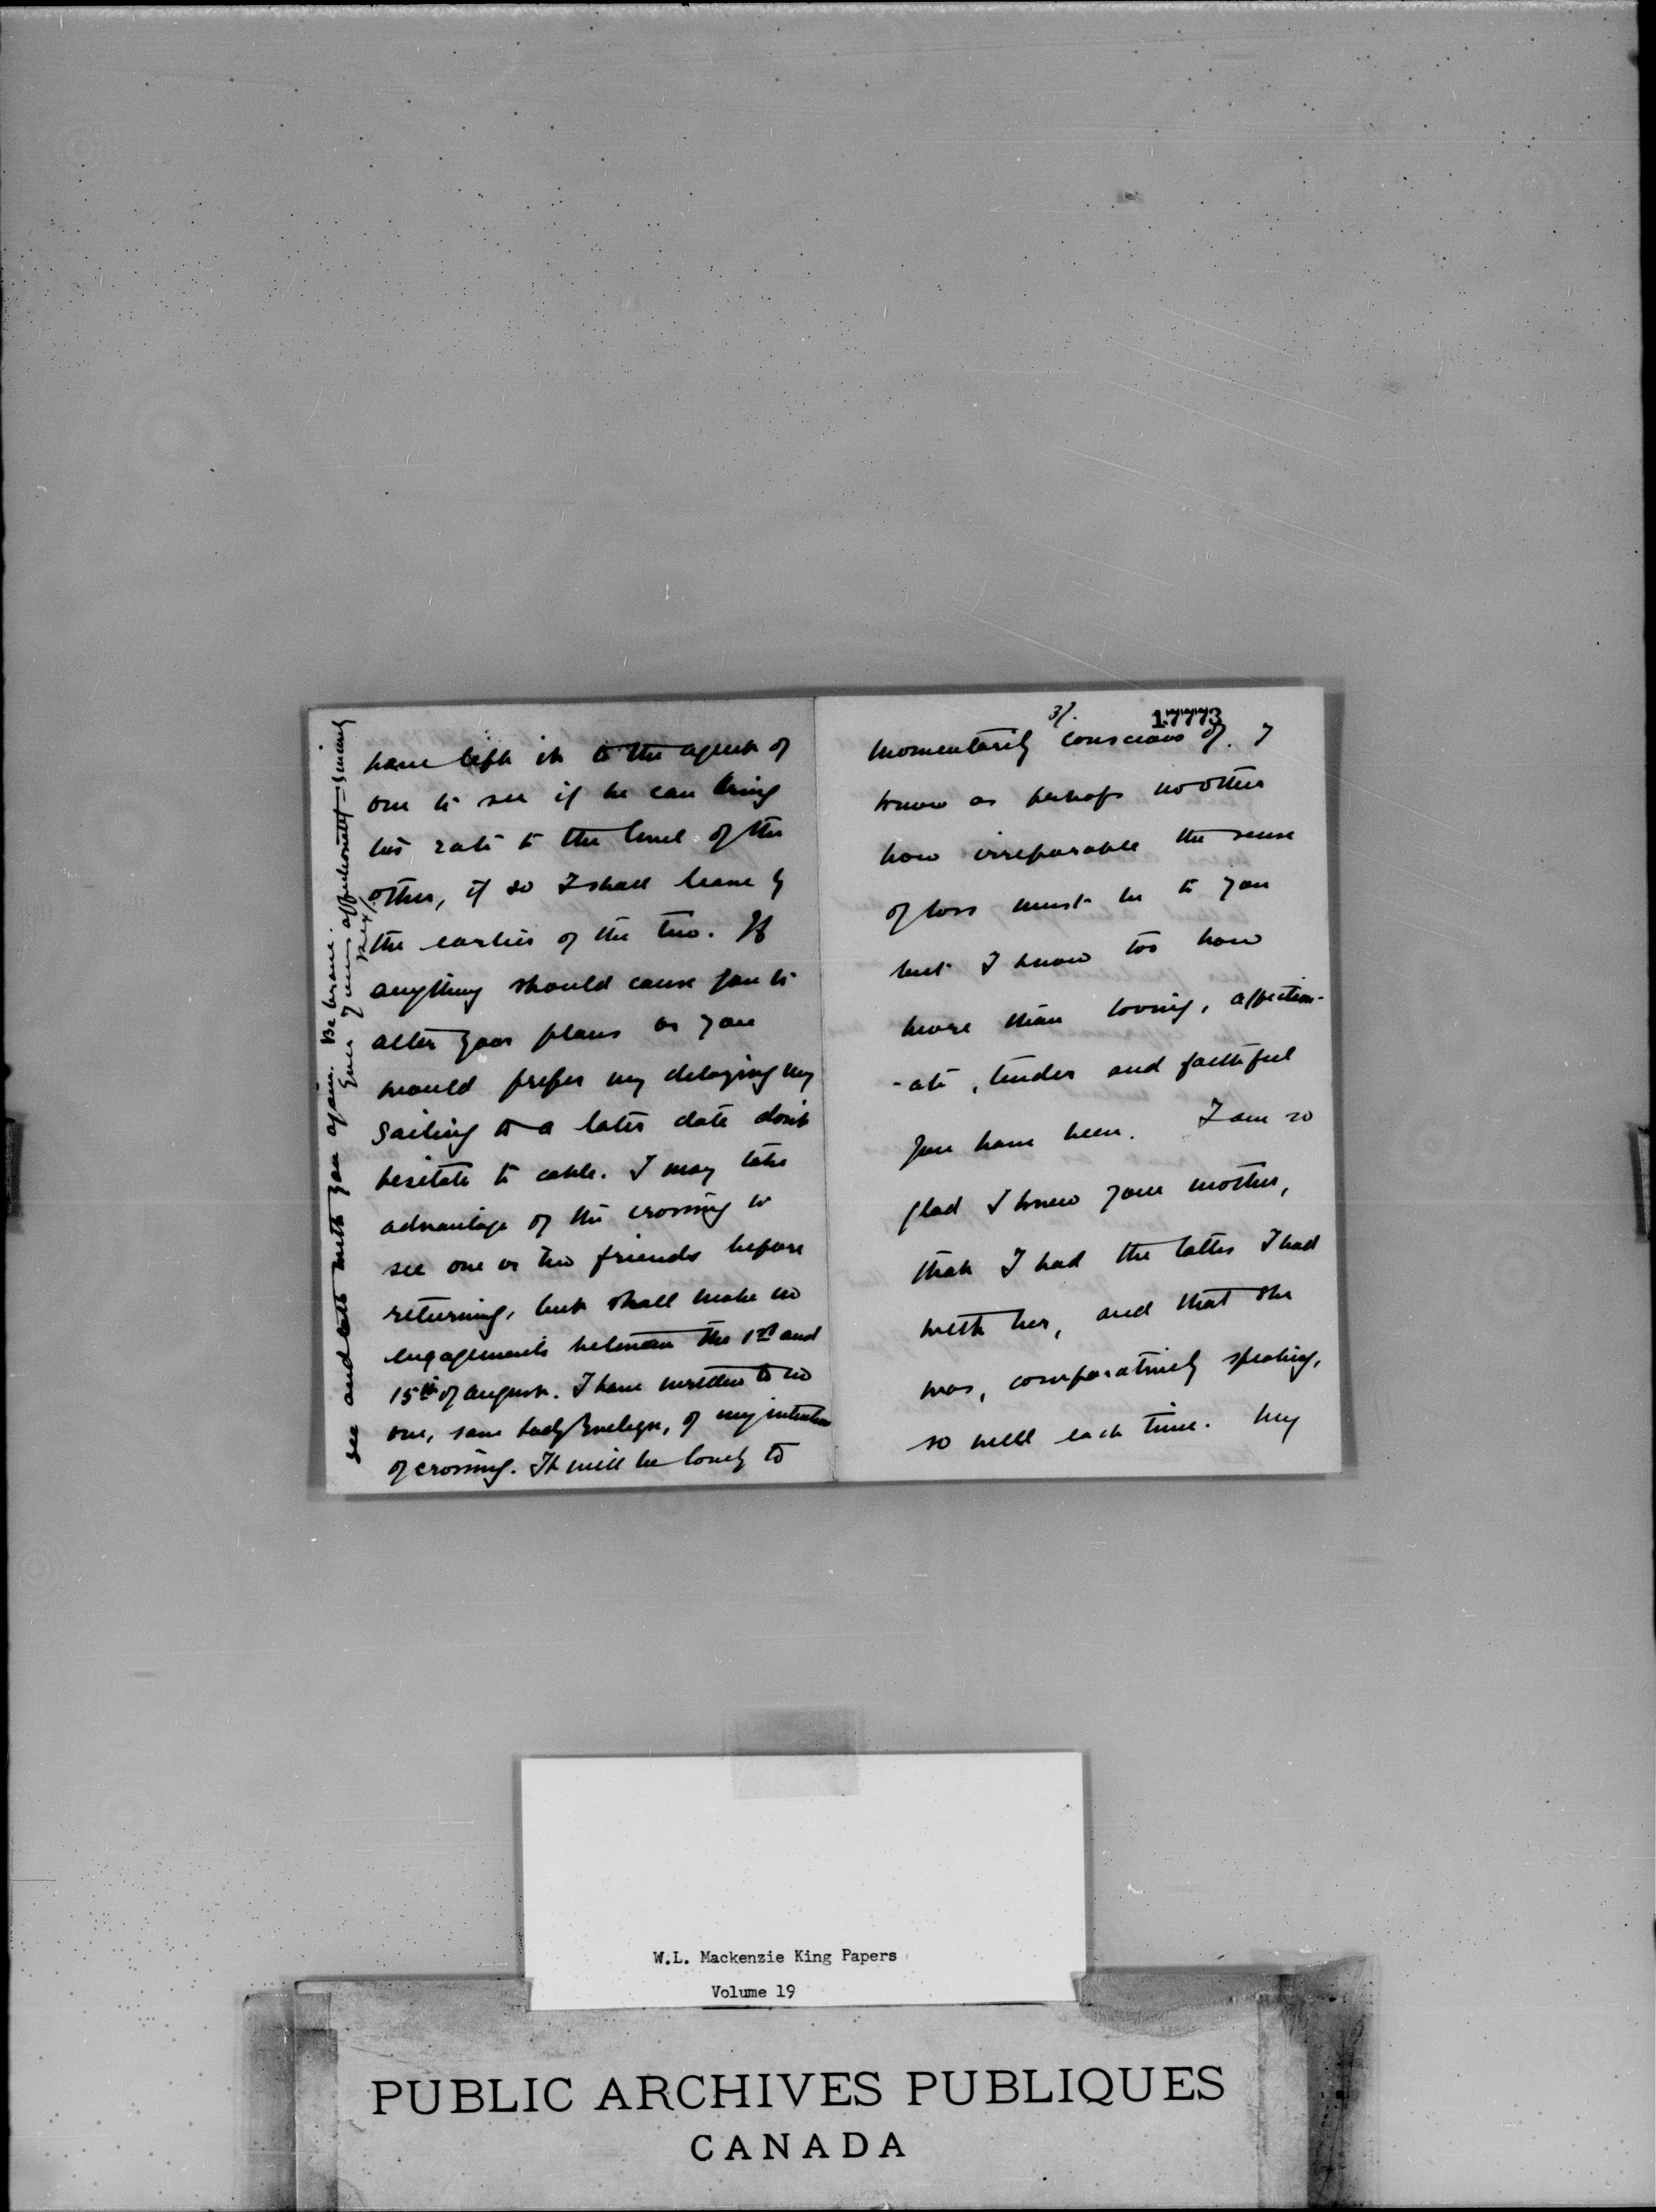 have left it to the agent of
one to see if he can bring
his rate to the level of the
other, if so I shall leave by
the earlier of the two. If
anything should cause you to
alter your plans or you
would prefer my delaying my
sailing to a later date don't
hesitate to cable. I may take
advantage of the crossing to
see one or two friends before
returning, but shall make no
engagements between the 1st and
15th of August. I have written to no
one, save Lady Evelyn, of my intention
of crossing. It will be lovely to
see and talk with you again. Be brave.
Ever yours affectionately & sincerely
Rex/.
3/.
17773
momentarily conscious of. I
know as perhaps no other
how irreparable the sense
of loss must be to you
but I know too how
more than loving, affection-
-ate, tender and faithful
you have been. I am so
glad I knew your mother,
that I had the talks I had
with her, and that she
was, comparatively speaking,
so well each time. My
W.L. Mackenzie King Papers
Volume 19
PUBLIC ARCHIVES PUBLIQUES
CANADA